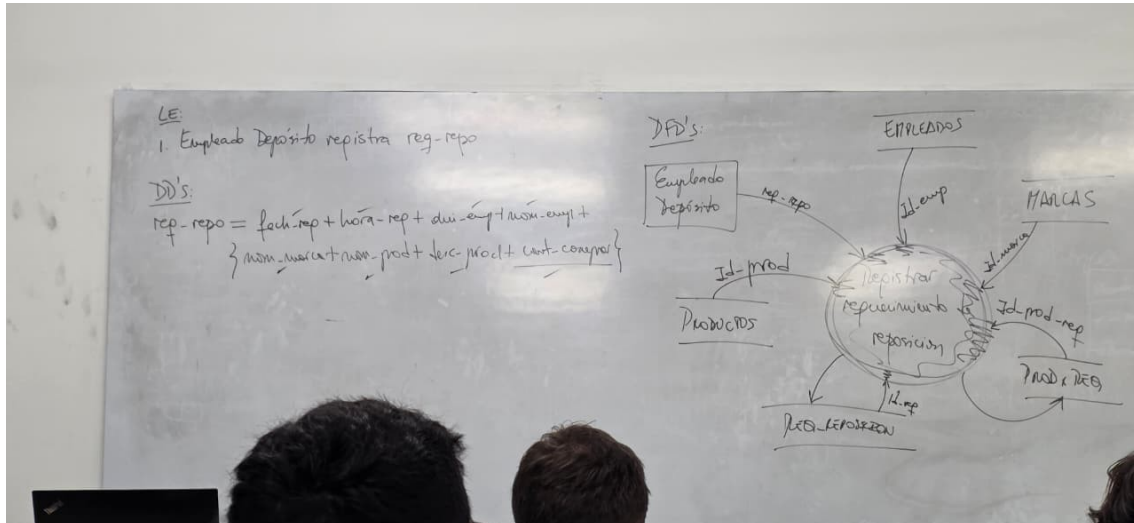 LE:
1. Empleado Depósito registra req-repo
DD's:
rep-repo = fech-rep + hora-rep + dni-emp + nom-empl +
{ nom-marca + nom-prod + desc-prod + cant-comprar }
DFD's:
EMPLEADOS
Empleado
Depósito
rep-repo
Id-emp
MARCAS
Id-marca
Id-prod
PRODUCTOS
Registrar
requerimiento
reposicion
Id-prod-rep
PROD x REQ
Id-rep
REQ-REPOSICION